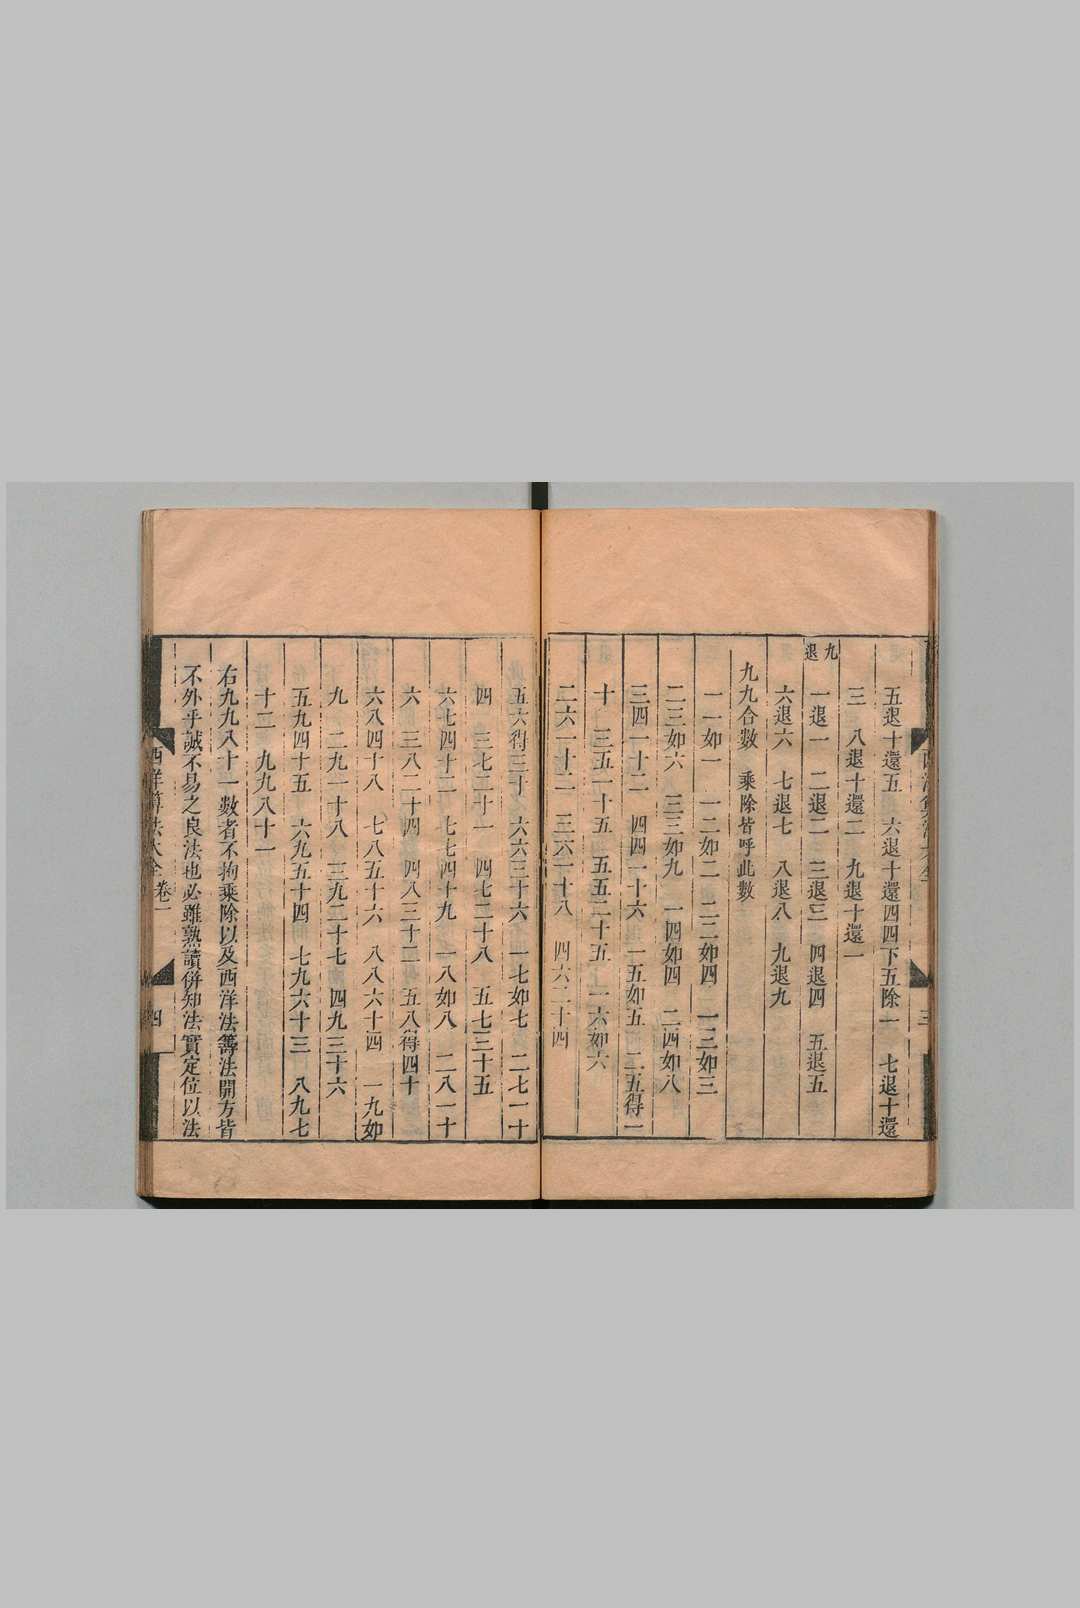 五退十還五　六退十還四四下五除一　七退十還
三　八退十還二　九退十還一
九退
一退一　二退二　三退三　四退四　五退五
六退六　七退七　八退八　九退九
九九合數　乘除皆呼此數
一一如一　一二如二　二二如四　一三如三
二三如六　三三如九　一四如四　二四如八
三四一十二　四四一十六　一五如五　二五得一
十　三五一十五　五五二十五　一六如六
二六一十二　三六一十八　四六二十四
五六得三十　六六三十六　一七如七　二七一十
四　三七二十一　四七二十八　五七三十五
六七四十二　七七四十九　一八如八　二八一十
六　三八二十四　四八三十二　五八得四十
六八四十八　七八五十六　八八六十四　一九如
九　二九一十八　三九二十七　四九三十六
五九四十五　六九五十四　七九六十三　八九七
十二　九九八十一
右九九八十一數者不拘乘除以及西洋法籌法開方皆
不外乎誠不易之良法也必雖熟讀併知法實定位以法
西洋算法大全　卷一　四